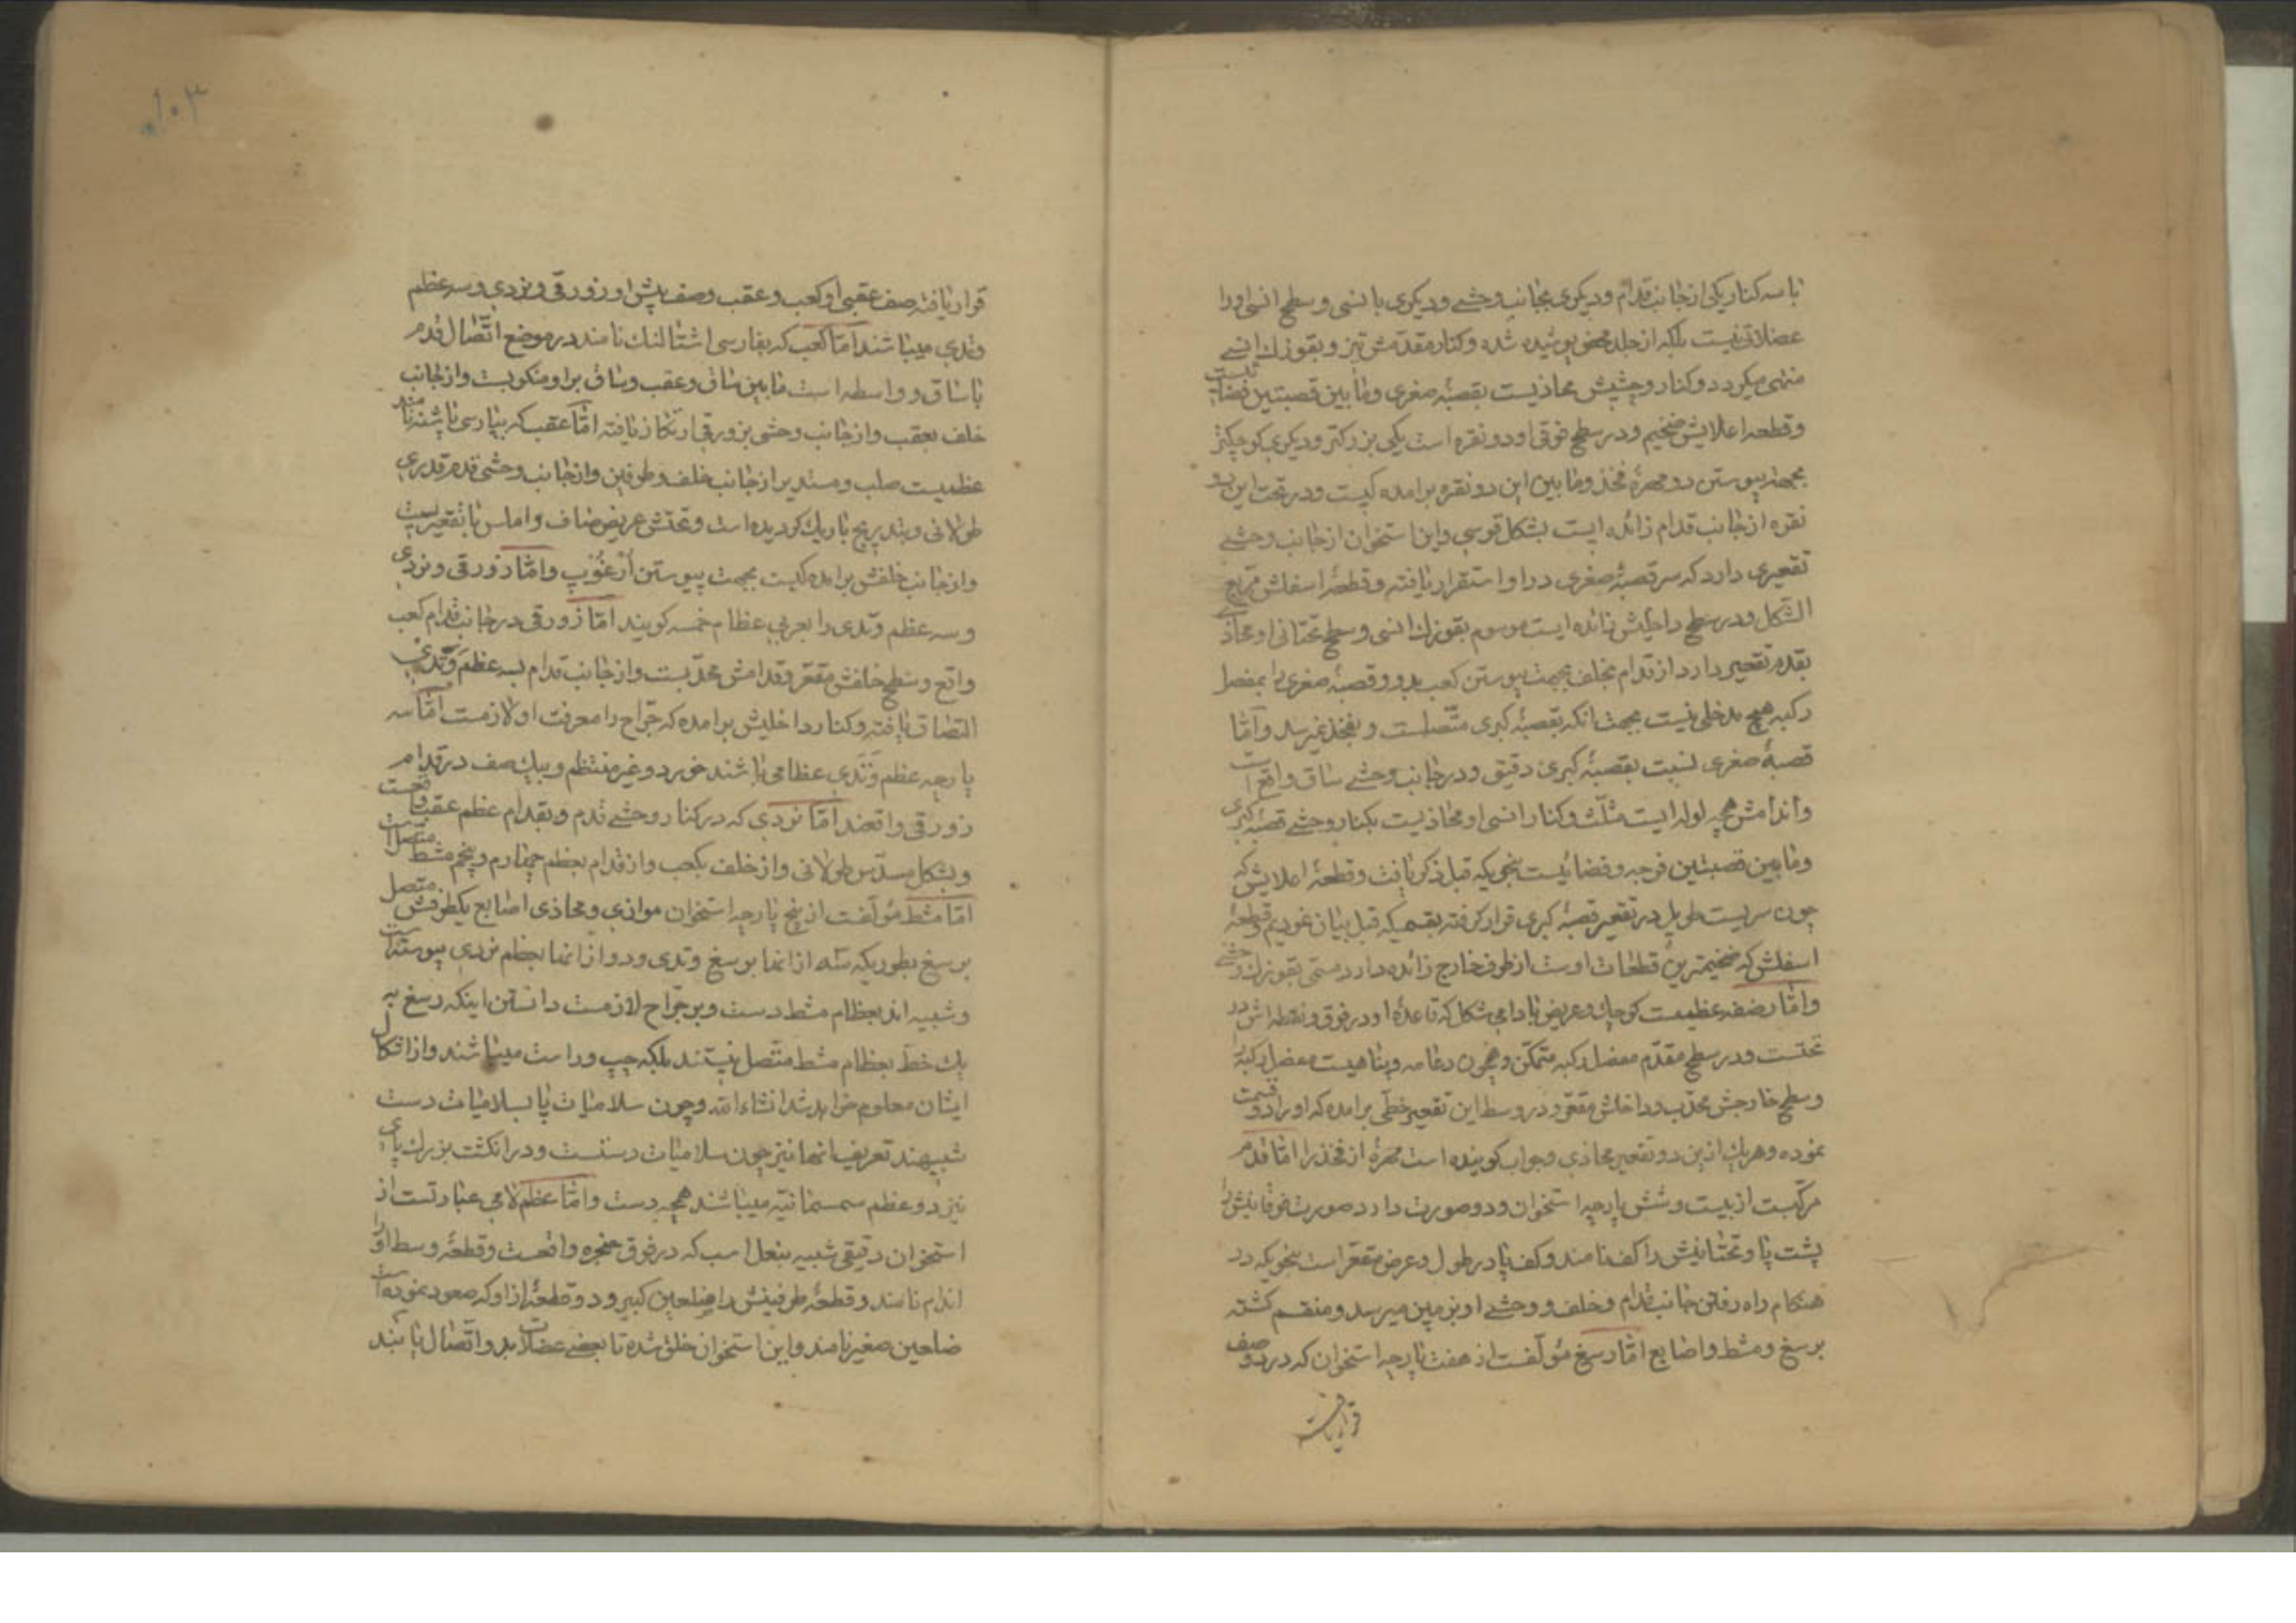 با سه کنار یکی از جانب قدام و دیکری بجانب وحشی و دیکری با نسی و سطح انسی اورا
عضلاتی نیست بلکه از جلد محض پوشیده شده و کنار مقدمش تیز و بقوزك انسی
منتهی میکردد و کنار وحشیش محاذیست بقصبهٔ صغری وما بین قصبتین فضائیست
و قطعه اعلایش ضخیم و در سطح فوقی او دو نقره است یکی بزرکتر و دیکری کوچکتر
بجهة پیوستن دو مهرهٔ فخذ وما بین این دو نقره برامده کیست و در تحت این دو
نقره از جانب قدام زائده ایست بشکل قوسی و این استخوان از جانب وحشی
تقعیری دارد که سر قصبهٔ صغری در او استقرار یافته و قطعهٔ اسفلش مربع
الشکل و در سطح داخلیش زائده ایست موسوم بقوزك انسی و سطح تحتانی او محاذی
بقدم تقعیر دارد از قدام بخلف بجهت پیوستن کعب بدو و قصبهٔ صغری را بمفصل
رکبه هیچ مدخلی نیست بجهت انکه بقصبهٔ کبری متصلست و بفخذ نمیرسد و امّا
قصبهٔ صغری نسبت بقصبهٔ کبری دقیق و در جانب وحشی ساق واقع است
واندامش همچه لوله ایست مثلّث و کنار انسی او محاذیست بکنار وحشی قصبهٔ کبری
وما بین قصبتین فرجه و فضائیست بنحویکه قبل ذکر یافت و قطعهٔ اعلایش که
چون سریست طویل در تقعیر قصبهٔ کبری قرار کرفته بقسمیکه قبل بیان نمودیم و قطعهٔ
اسفلش که ضخیمترین قطعات اوست از طرف خارج زائده دارد مسمّی بقوزك وحشی
وامّا رضفه عظمیست کوچك و عریض بادامی شکل که قاعدهٔ او در فوق و نقطه اش در
تحتست و در سطح مقدّم مفصل رکبه متمکن و همچون دعامه و پناهیست مفصل رکبه را
و سطح خارجش محدّب و داخلش مقعّر و در وسط این تقعیر خطّی برامده که او را دو قسمت
نموده و هریك ازین دو تقعیر محاذی و جواب کوینده است مهرهٔ از فخذ را امّا قدم
مرکّبست از بیست و شش پارچه استخوان و دو صورت دارد صورت فوقانیش را
پشت پا و تحتانیش را کف نامند و کف پا در طول و عرض مقعّر است بنحویکه در
هنکام راه رفتن جانب قدام و خلف و وحشی او بزمین میرسد و منقسم کشته
برسغ و مشط و اصابع امّا رسغ مؤلّفست از هفت پارچه استخوان که در دو صف
قرار یافته
۱۰۳
قرار یافته صف عقبی او کعب و عقب و صف پیش او زورقی و نردی و سه عظم
وتدی میباشند امّا کعب که بفارسی اشتالنك نامند در موضع اتّصال قدم
با ساق و واسطه است ما بین ساق و عقب و ساق بر او متکویست و از جانب
خلف بعقب و از جانب وحشی بزورقی ارتکاز یافته امّا عقب که بپارسی پاشنه نامند
عظمیست صلب و مستدیر از جانب خلف و طرفین و از جانب وحشی قدم قدری
طولانی و بتدریج باریك کردیده است و تحتش عریض صاف و املس با تقعیریست
و از جانب خلفش برامده کیست بجهت پیوستن از غؤب وامّا زورقی و نردی
و سه عظم وتدی را بعربی عظام خمسه کویند امّا زورقی در جانب قدام کعب
واقع و سطح خلفش مقعّر و قدامش محدّبست و از جانب قدام بسه عظم وتدی
التصاق یافته و کنار داخلیش برامده که جرّاح را معرفت او لازمست امّا سه
پارچه عظم وتدی عظامی باشند خورد و غیر منتظم و بیك صف در قدام
زورقی واقعند امّا نردی که در کنار وحشی قدم و بقدام عظم عقب واقعست
و بشکل مسدّس طولانی و از خلف بکعب و از قدام بعظم چهارم و پنجم مشط متّصلست
امّا مشط مؤلّفست از پنج پارچه استخوان موازی و محاذی اصابع یکطرفش متصل
برسغ بطوریکه سه از انها برسغ وتدی و دو از انها بعظم نردی پیوسته است
و شبیه اند بعظام مشط دست و بر جرّاح لازمست دانستن اینکه رسغ به
یك خطّ بعظام مشط متّصل نیستند بلکه چپ و راست میباشند و از اشکال
ایشان معلوم خواهد شد انشاءالله و چون سلامیات پا بسلامیات دست
شبیهند تعریف انها نیز چون سلامیات دستست و در انکشت بزرك پای
نیز دو عظم سمسمانیّه میباشند همچه دست وامّا عظم لامی عبارتست از
استخوان دقیقی شبیه بنعل اسب که در فوق حنجره واقعست و قطعهٔ وسط او را
اندام نامند و قطعهٔ طرفینش را ضلعین کبیر و دو قطعهٔ از او که صعود نموده است
ضلعین صغیر نامند و این استخوان خلق شده تا بعضی عضلات بدو اتّصال یابند